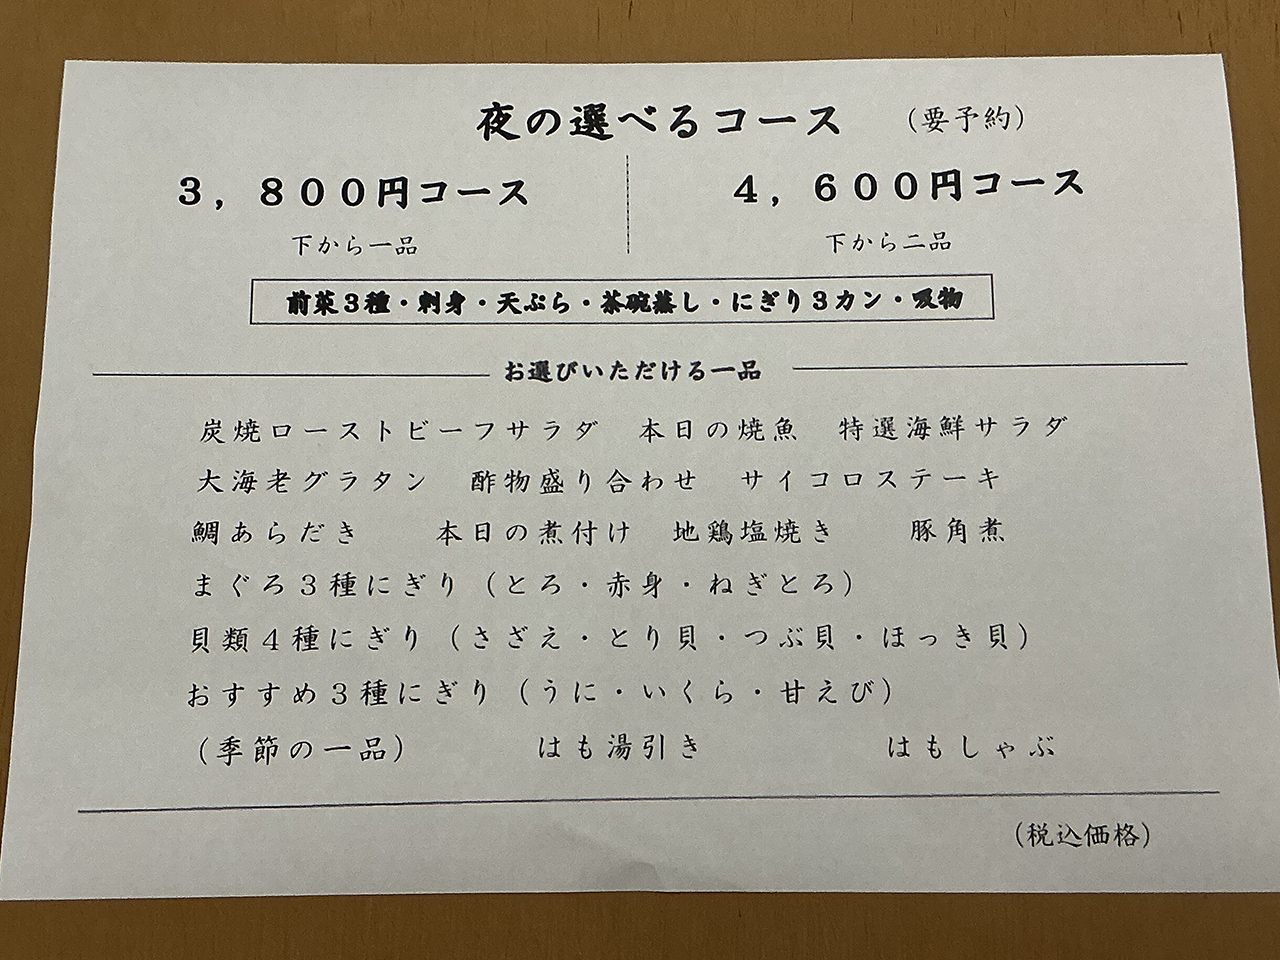 夜の選べるコース （要予約）
３，８００円コース ４，６００円コース
下から一品 下から二品
前菜３種・刺身・天ぷら・茶碗蒸し・にぎり３カン・吸物
お選びいただける一品
炭焼ローストビーフサラダ 本日の焼魚 特選海鮮サラダ
大海老グラタン 酢物盛り合わせ サイコロステーキ
鯛あらだき 本日の煮付け 地鶏塩焼き 豚角煮
まぐろ３種にぎり（とろ・赤身・ねぎとろ）
貝類４種にぎり（さざえ・とり貝・つぶ貝・ほっき貝）
おすすめ３種にぎり（うに・いくら・甘えび）
（季節の一品） はも湯引き はもしゃぶ
（税込価格）